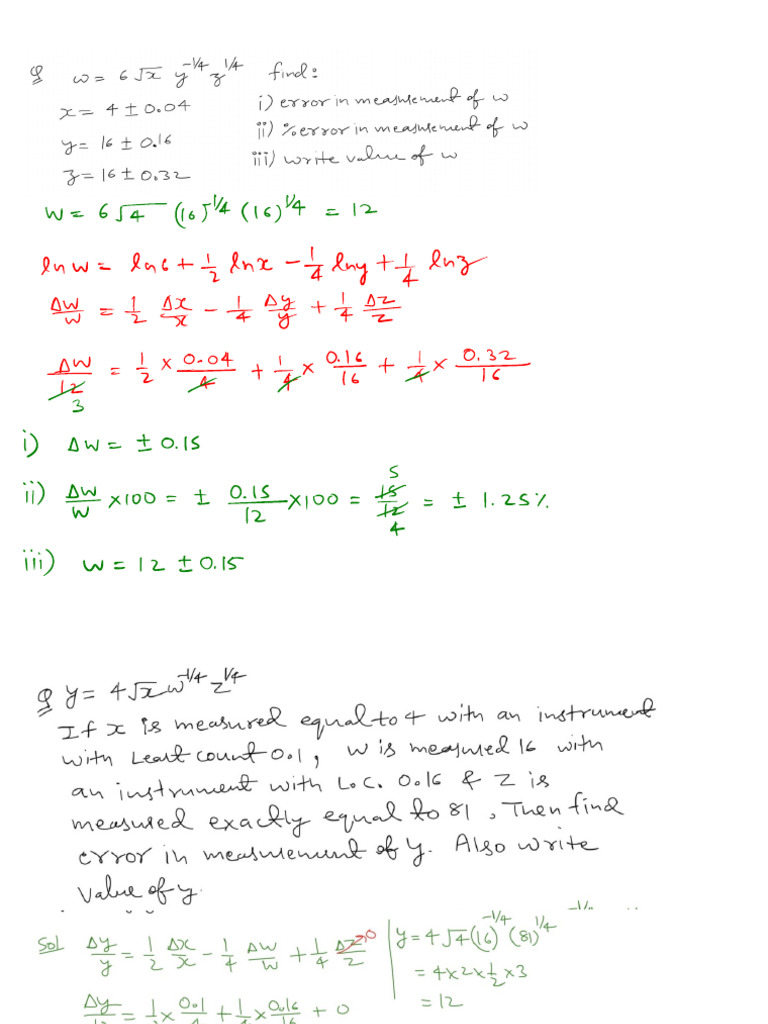 Q w = 6√x y^-1/4 z^1/4 find:
x = 4 ± 0.04 i) error in measurement of w
y = 16 ± 0.16 ii) % error in measurement of w
z = 16 ± 0.32 iii) write value of w
W = 6√4 (16)^-1/4 (16)^1/4 = 12
ln w = ln 6 + 1/2 ln x - 1/4 ln y + 1/4 ln z
ΔW/W = 1/2 Δx/x - 1/4 Δy/y + 1/4 Δz/z
ΔW/12 = 1/2 × 0.04/4 + 1/4 × 0.16/16 + 1/4 × 0.32/16
3
i) ΔW = ± 0.15
ii) ΔW/W × 100 = ± 0.15/12 × 100 = 15/12 = ± 1.25%
5
4
iii) W = 12 ± 0.15
Q y = 4√x w^-1/4 z^1/4
If x is measured equal to 4 with an instrument
with Least count 0.1, w is measured 16 with
an instrument with L.C. 0.16 & z is
measured exactly equal to 81, Then find
error in measurement of y. Also write
value of y.
Sol Δy/y = 1/2 Δx/x - 1/4 Δw/w + 1/4 Δz/z 0
y = 4√4 (16)^-1/4 (81)^1/4
= 4 × 2 × 1/2 × 3
= 12
Δy/12 = 1/2 × 0.1/4 + 1/4 × 0.16/16 + 0